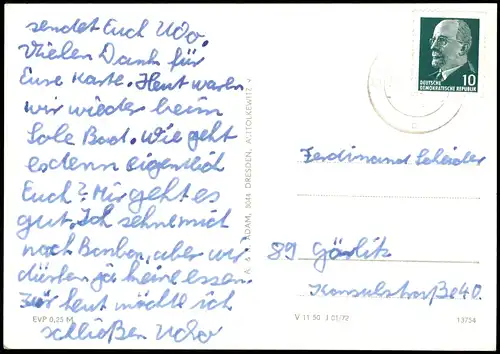 sendet Euch Udo.
Vielen Dank für
Eure Karte. Heut waren
wir wieder beim
Sole Bad. Wie geht
es denn eigentlich
Euch? Mir geht es
gut. Ich sehne mich
nach Bonbon, aber wir
dürfen ja keine essen.
Für heut möchte ich
schließen Udo
EVP 0,25 M
A. & R. ADAM, 8046 DRESDEN, A.-TOLKEWITZ
DEUTSCHE
DEMOKRATISCHE REPUBLIK
10
Ferdinand
89 Görlitz
Konsulstraße 40.
V 11 50 J 01/72
13754